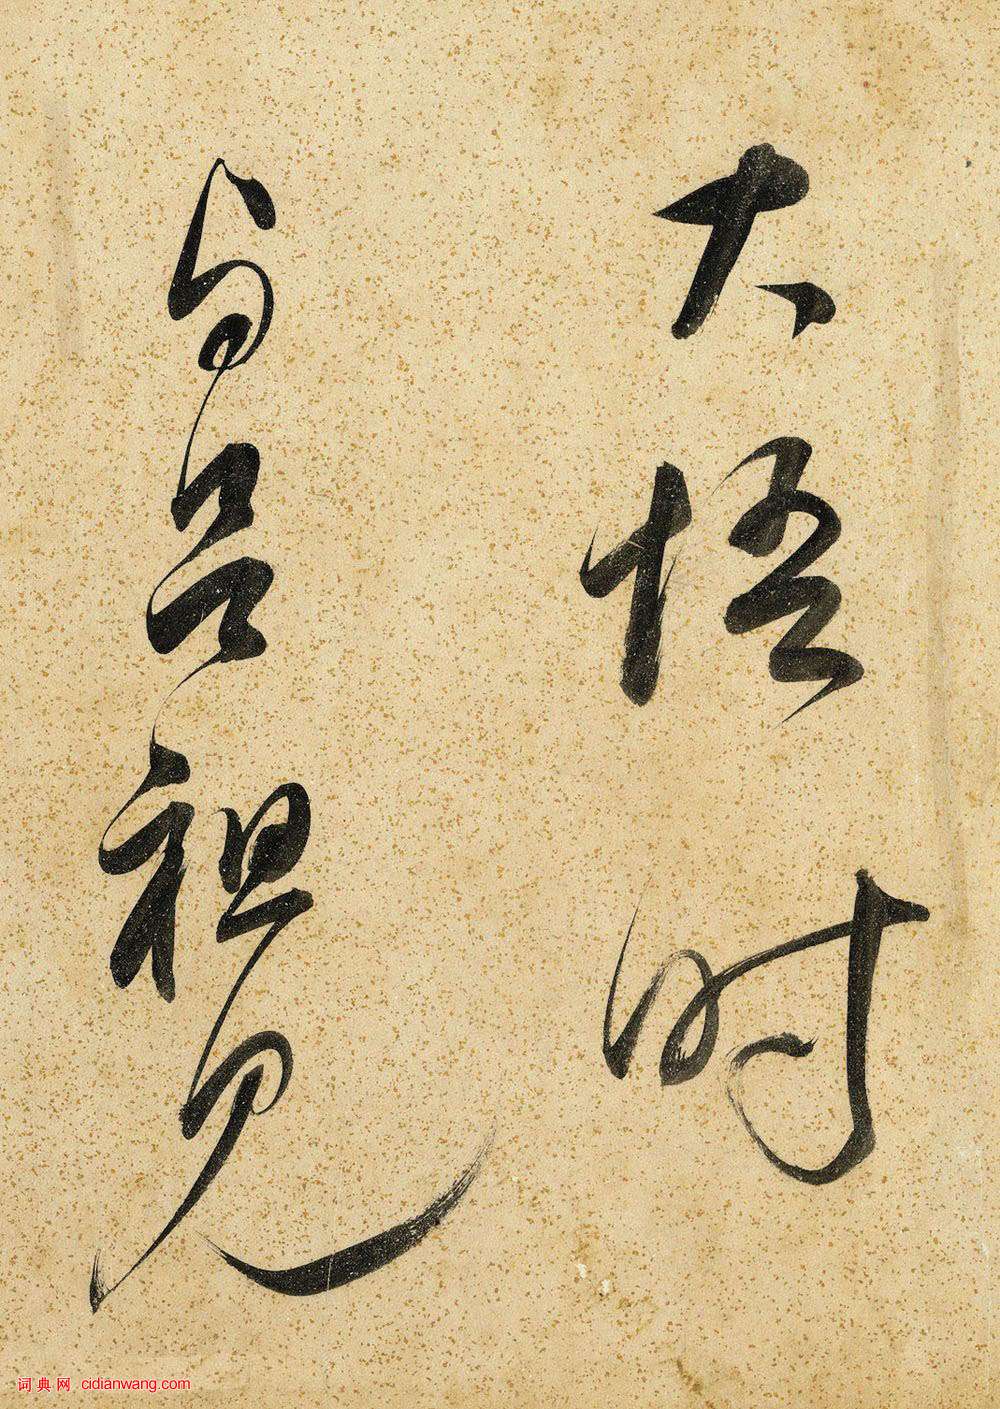 大悟时
与吕祖见
词典网 cidianwang.com